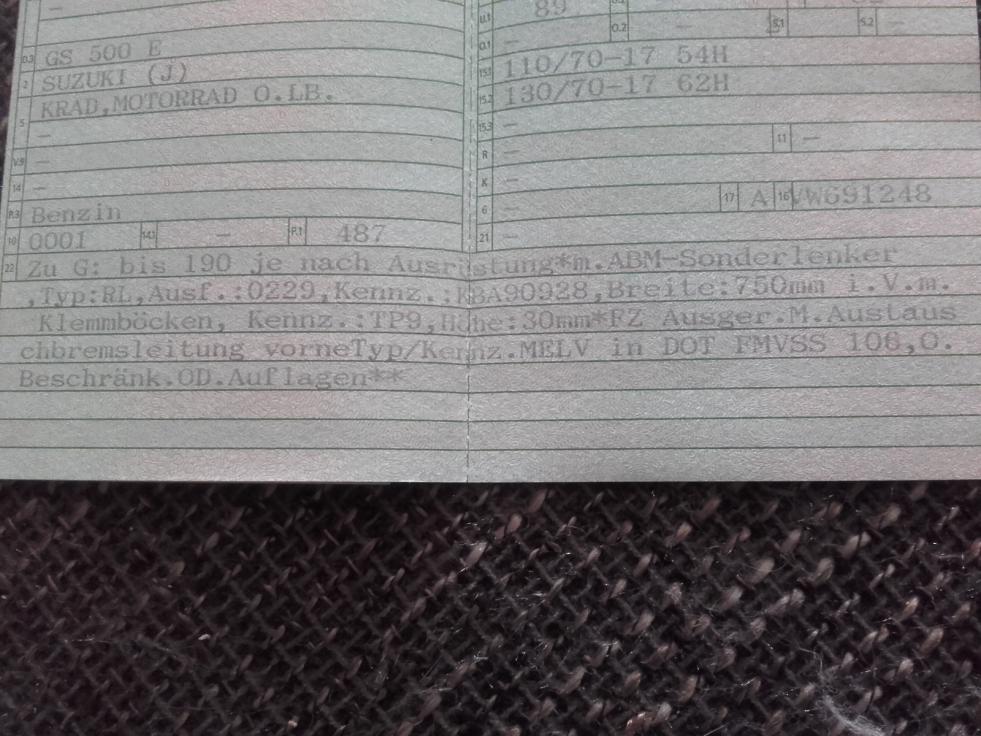 —
U.1 89
O.1 — O.2 — S.1 — S.2 —
D.3 GS 500 E
2 SUZUKI (J)
5 KRAD,MOTORRAD O.LB.
—
V.9 —
14 —
P.3 Benzin
10 0001 14.1 — P.1 487
15.1 110/70-17 54H
15.2 130/70-17 62H
15.3 —
R — 11 —
K —
6 — 17 A 16 VW691248
21 —
22 Zu G: bis 190 je nach Ausrüstung*m.ABM-Sonderlenker
,Typ:RL,Ausf.:0229,Kennz.:KBA90928,Breite:750mm i.V.m.
Klemmböcken, Kennz.:TP9,Höhe:30mm*FZ Ausger.M.Austaus
chbremsleitung vorneTyp/Kennz.MELV in DOT FMVSS 106,O.
Beschränk.OD.Auflagen**